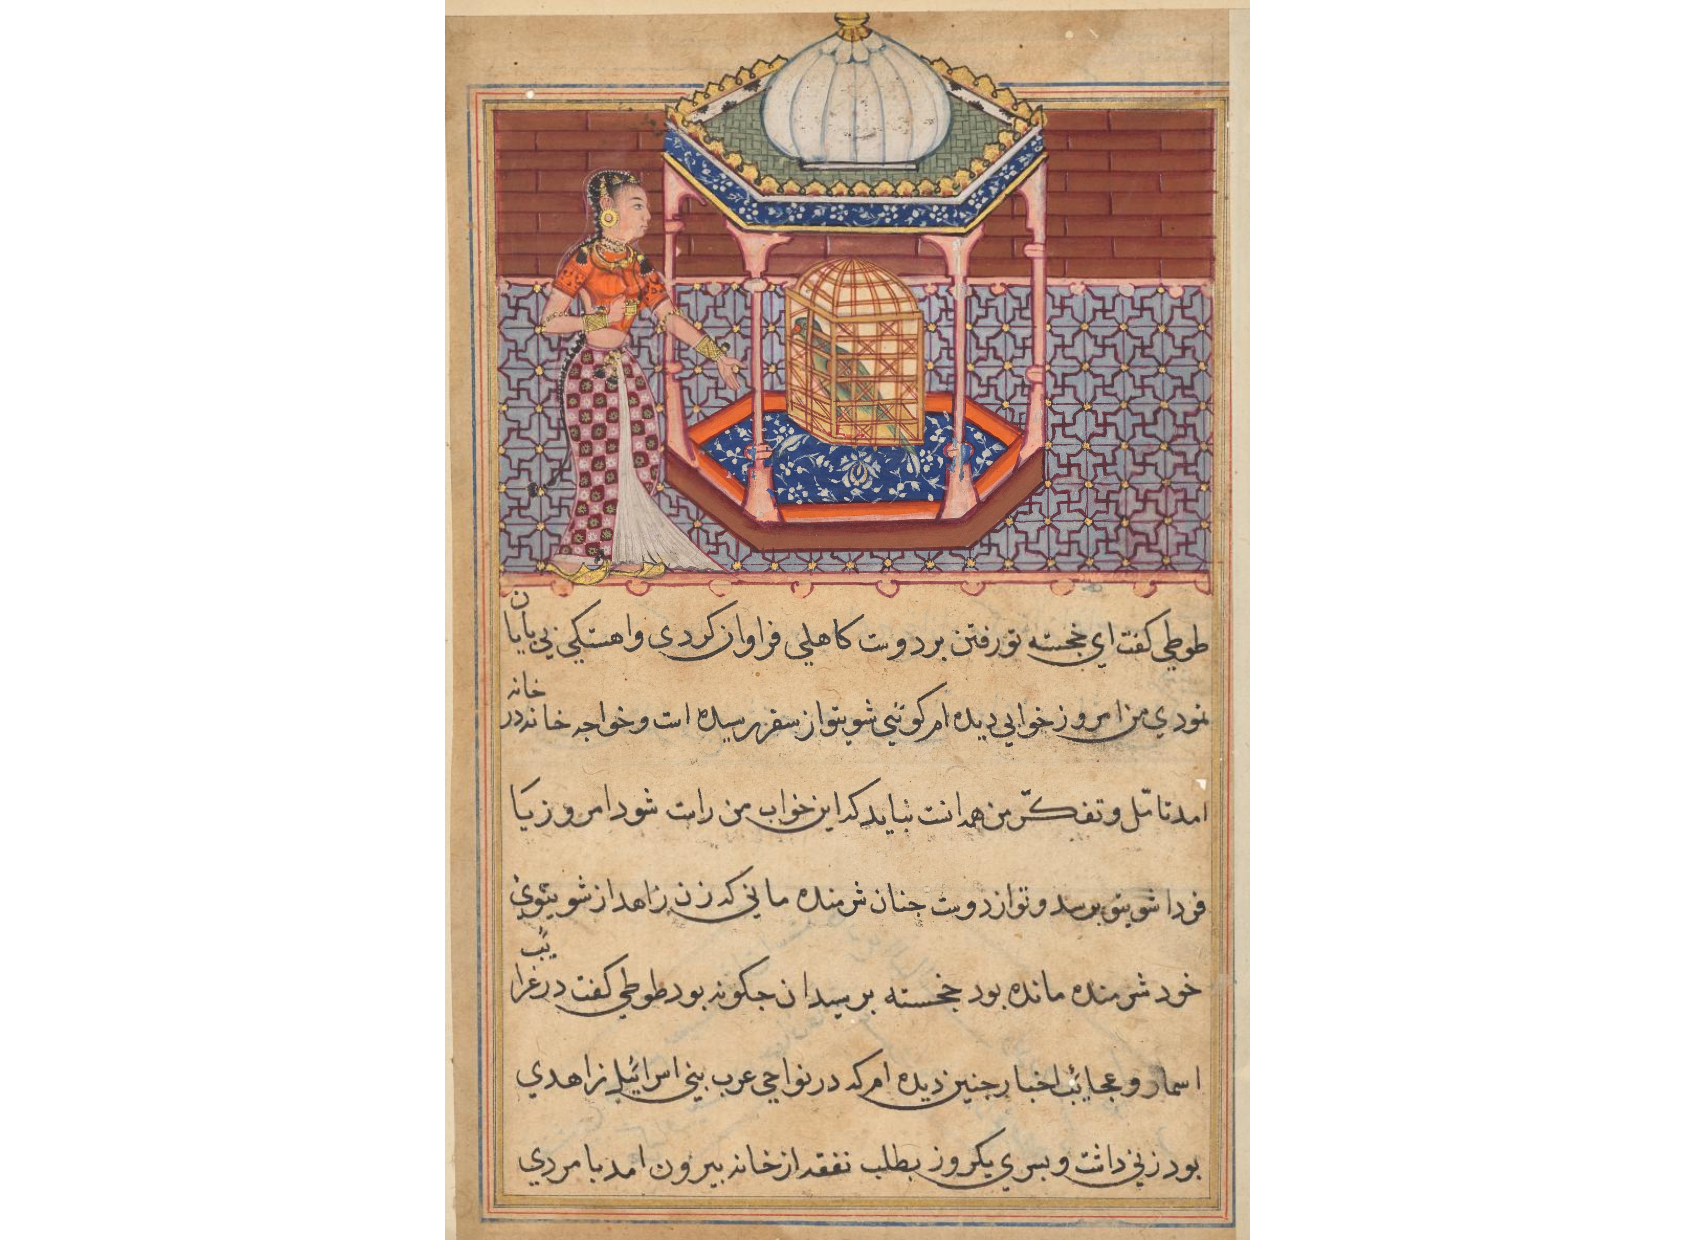 طوطی کفت ای خجسته تو رفتن بر دوست کاهلی فراوان کردی و اهستکی بی پایان
نمودی من امروز خوابی دیده ام کوئی شوی تو از سفر رسیده است و خواجه خانه در خانه
امد تامّل و تفکّر من همدانست نباید که این خواب من راست شود امروز یا
فردا شوی تو برسد و تو از دوست جنان شرمنده مانی که زن زاهد از شوی
خود شرمنده مانده بود خجسته برسید ان جکونه بود طوطی کفت در غرایب
اسمار و عجایٔب اخبار جنین دیده ام که در نواحی عرب بنی اسرائیل زاهدی
بود زنی داشت و بسری یکروز بطلب نفقه از خانه بیرون امد با مردی